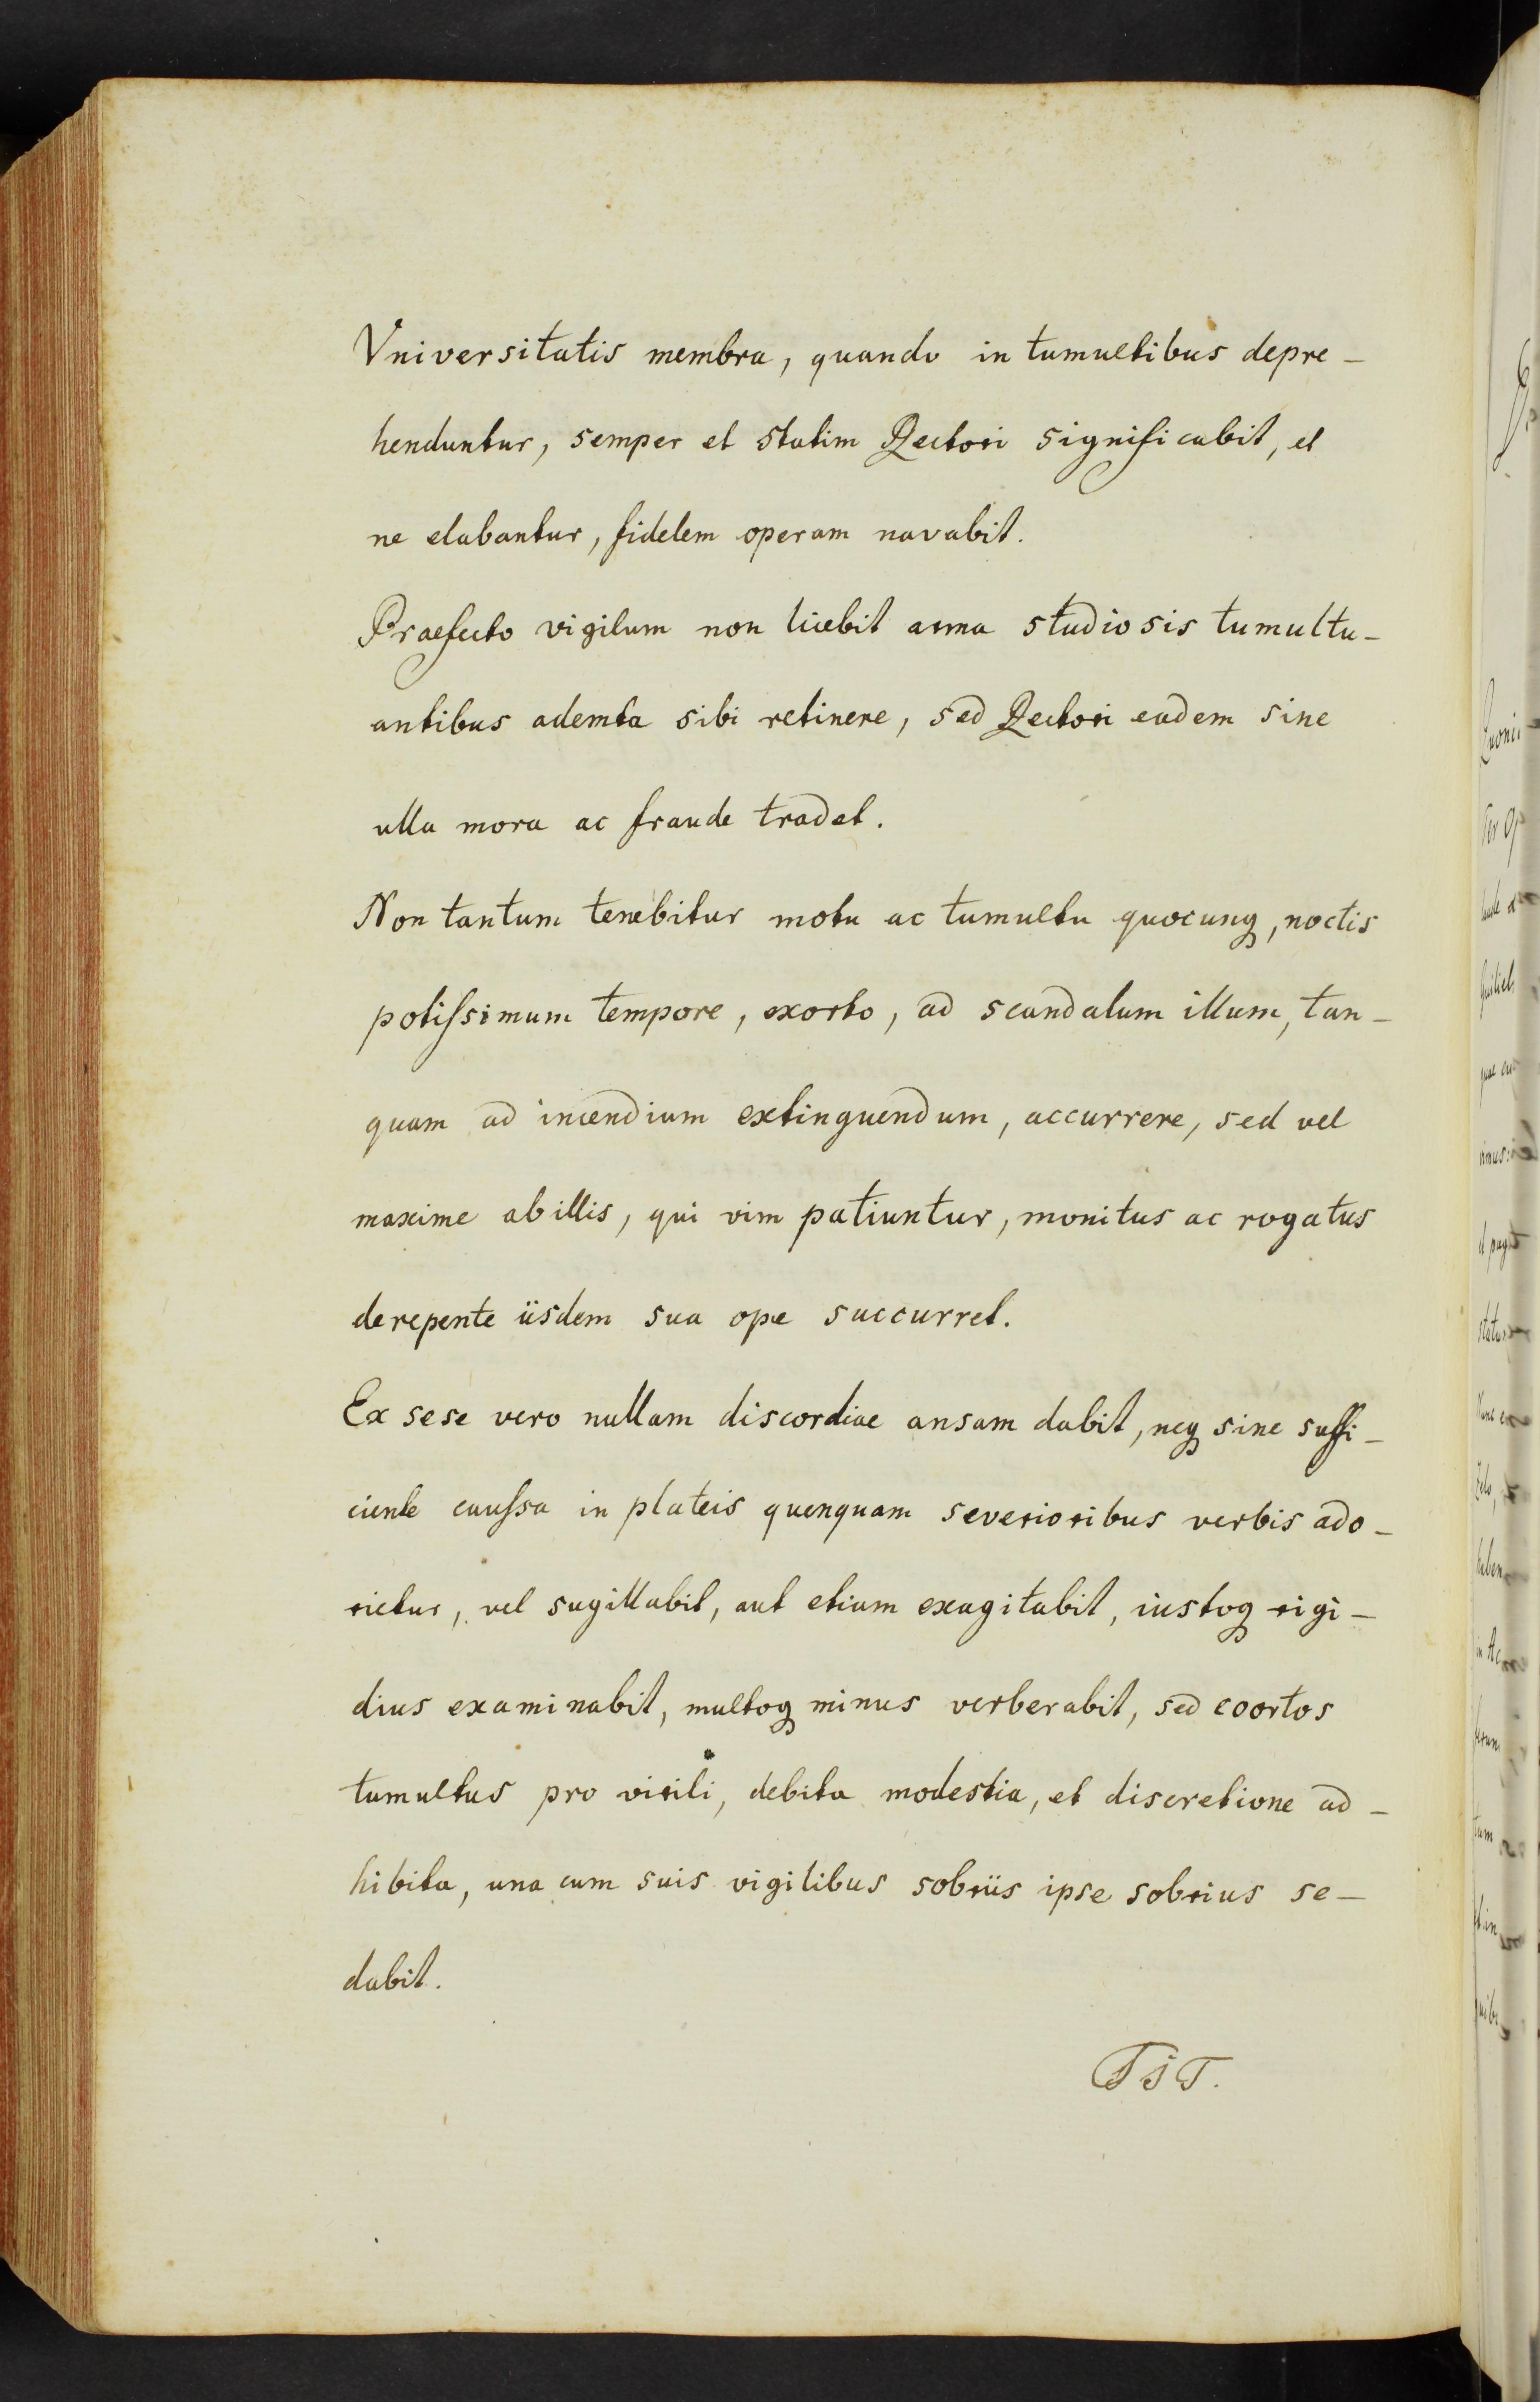 Vniversitatis membra, quando in tumultibus depre-
henduntur, semper et statim Rectori significabit, et
ne elabantur, fidelem operam navabit.
Praefecto vigilum non licebit arma studiosis tumultu-
antibus ademta sibi retinere, sed Rectori eadem sine
ulla mora ac fraude tradet.
Non tantum tenebitur motu ac tumultu quocunq, noctis
potiſsimum tempore, exorto, ad scandalum illum, tan-
quam ad incendium extinguendum, accurrere, sed vel
maxime ab illis, qui vim patiuntur, monitus ac rogatus
derepente iisdem sua ope succurret.
Ex sese vero nullam discordiae ansam dabit, neq sine suffi-
ciente cauſsa in plateis quenquam severioribus verbis ado-
rietur, vel sugillabit, aut etiam exagitabit, iustoq rigi-
dius examinabit, multoq minus verberabit, sed coortos
tumultus pro virili, debita modestia, et discretione ad-
hibita, una cum suis vigilibus sobriis ipse sobrius se-
dabit.